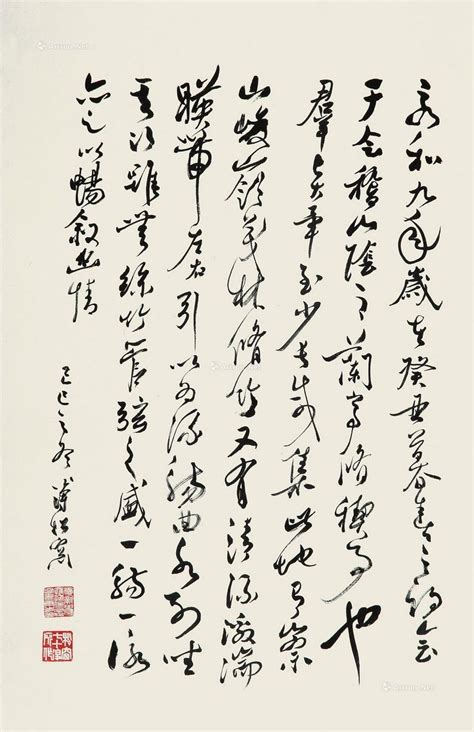 永和九年歲在癸丑暮春之初會
于會稽山陰之蘭亭脩禊事也
羣賢畢至少長咸集此地有崇
山峻嶺茂林脩竹又有清流激湍
暎帶左右引以為流觴曲水列坐
其次雖無絲竹管弦之盛一觴一詠
亦足以暢敘幽情
己巳之冬溥松窗